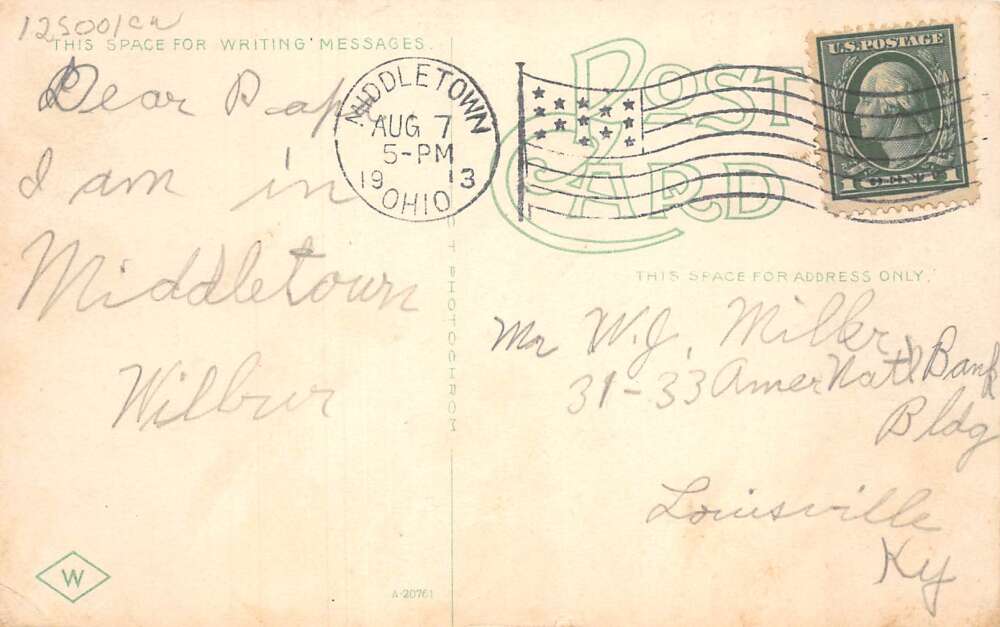 THIS SPACE FOR WRITING MESSAGES.
Dear Papa
I am in
Middletown
Wilbur
MIDDLETOWN
AUG 7
5-PM
1913
OHIO
POST CARD
U.S. POSTAGE
1 CENT 1
THIS SPACE FOR ADDRESS ONLY.
Mr W.J. Miller,
31-33 Amer Natl Bank
Bldg
Louisville
Ky
PHOTOCHROM
W
A-20761